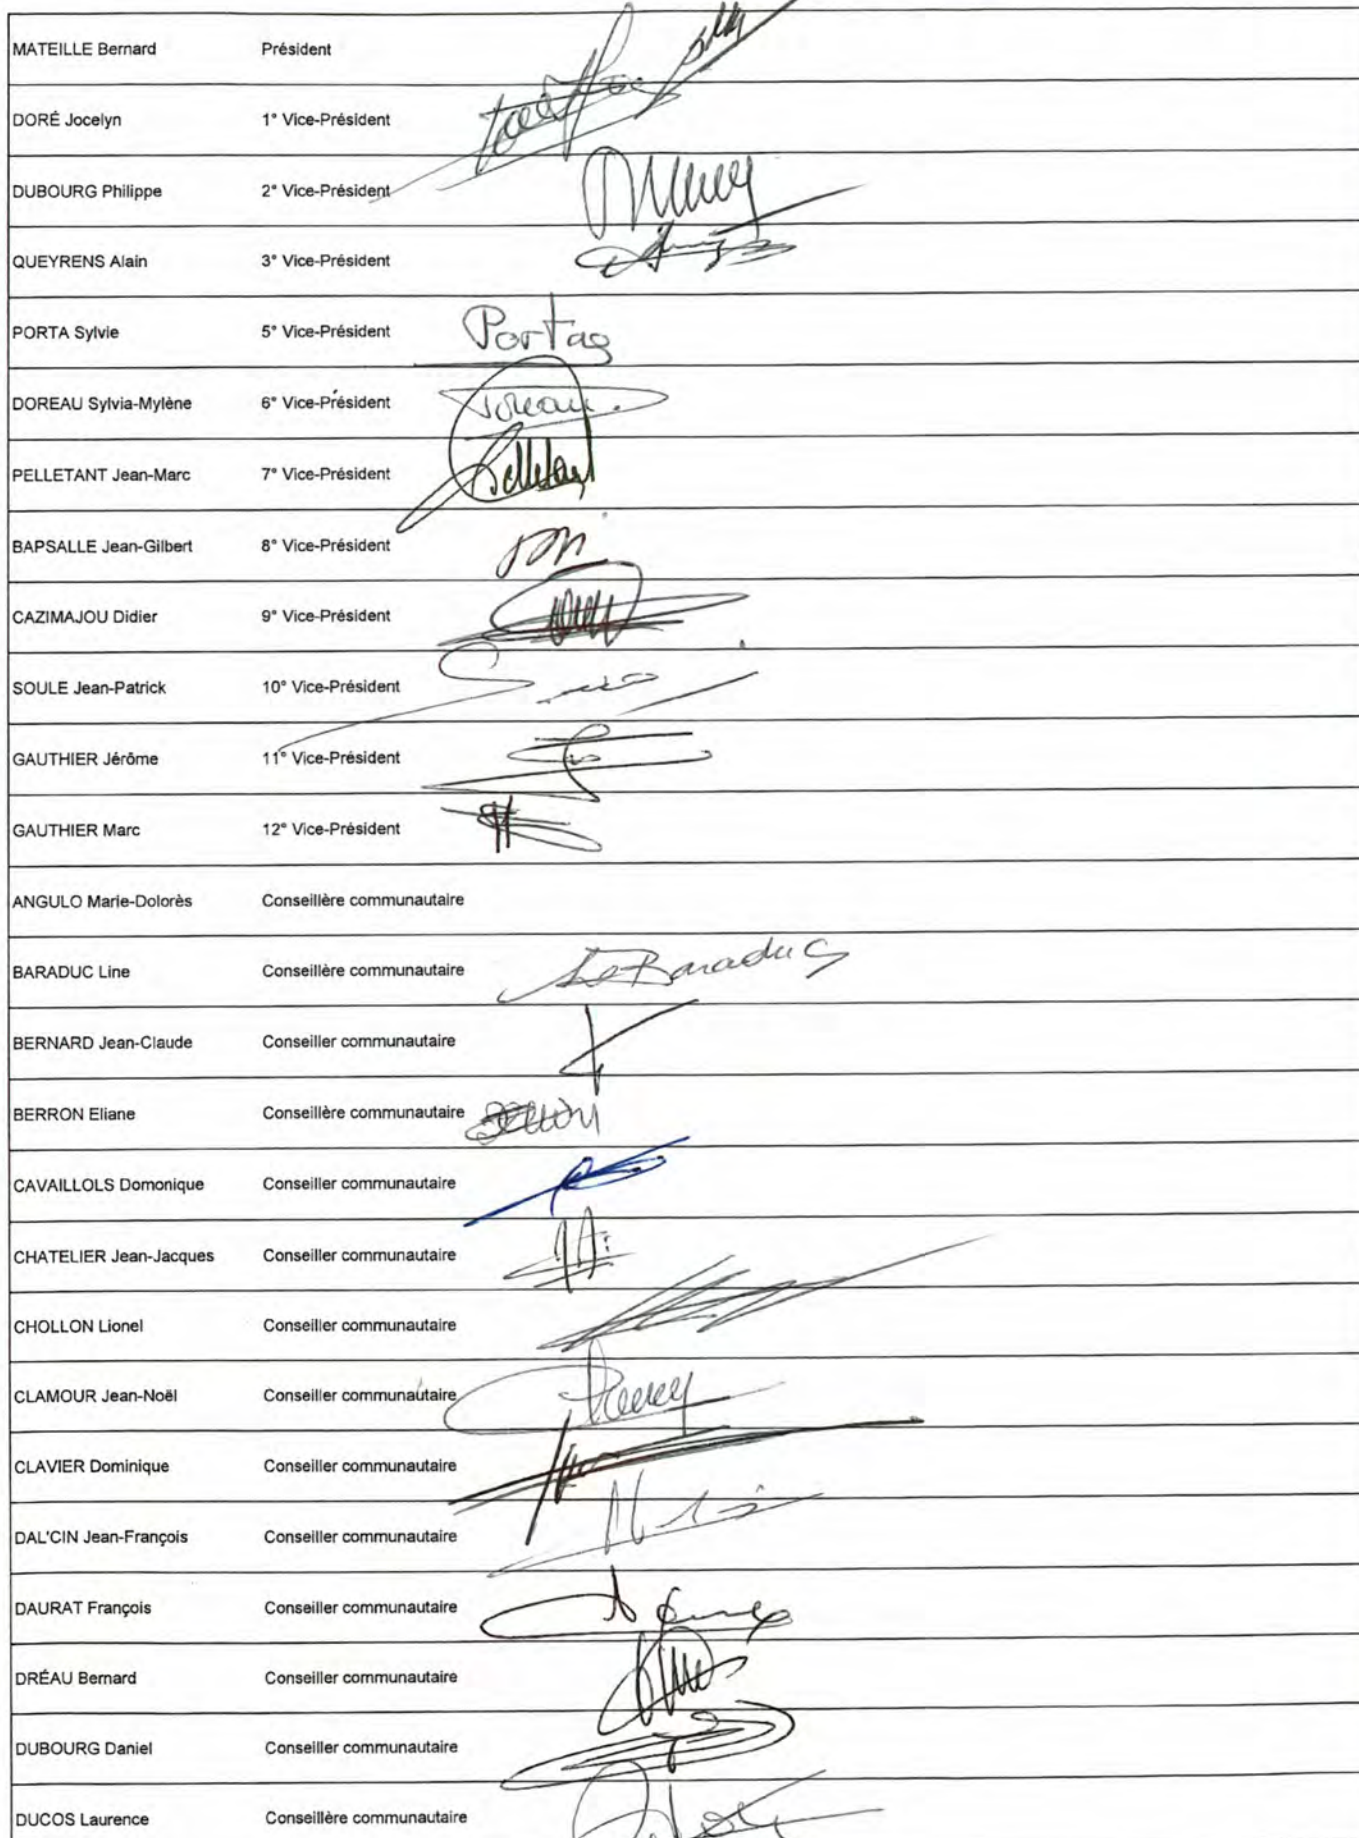 MATEILLE Bernard Président
DORÉ Jocelyn 1° Vice-Président
DUBOURG Philippe 2° Vice-Président
QUEYRENS Alain 3° Vice-Président
PORTA Sylvie 5° Vice-Président Porta
DOREAU Sylvia-Mylène 6° Vice-Président Doreau
PELLETANT Jean-Marc 7° Vice-Président Pelletant
BAPSALLE Jean-Gilbert 8° Vice-Président
CAZIMAJOU Didier 9° Vice-Président
SOULE Jean-Patrick 10° Vice-Président
GAUTHIER Jérôme 11° Vice-Président
GAUTHIER Marc 12° Vice-Président
ANGULO Marie-Dolorès Conseillère communautaire
BARADUC Line Conseillère communautaire Baraduc
BERNARD Jean-Claude Conseiller communautaire
BERRON Eliane Conseillère communautaire
CAVAILLOLS Domonique Conseiller communautaire
CHATELIER Jean-Jacques Conseiller communautaire
CHOLLON Lionel Conseiller communautaire
CLAMOUR Jean-Noël Conseiller communautaire
CLAVIER Dominique Conseiller communautaire
DAL'CIN Jean-François Conseiller communautaire
DAURAT François Conseiller communautaire
DRÉAU Bernard Conseiller communautaire
DUBOURG Daniel Conseiller communautaire
DUCOS Laurence Conseillère communautaire